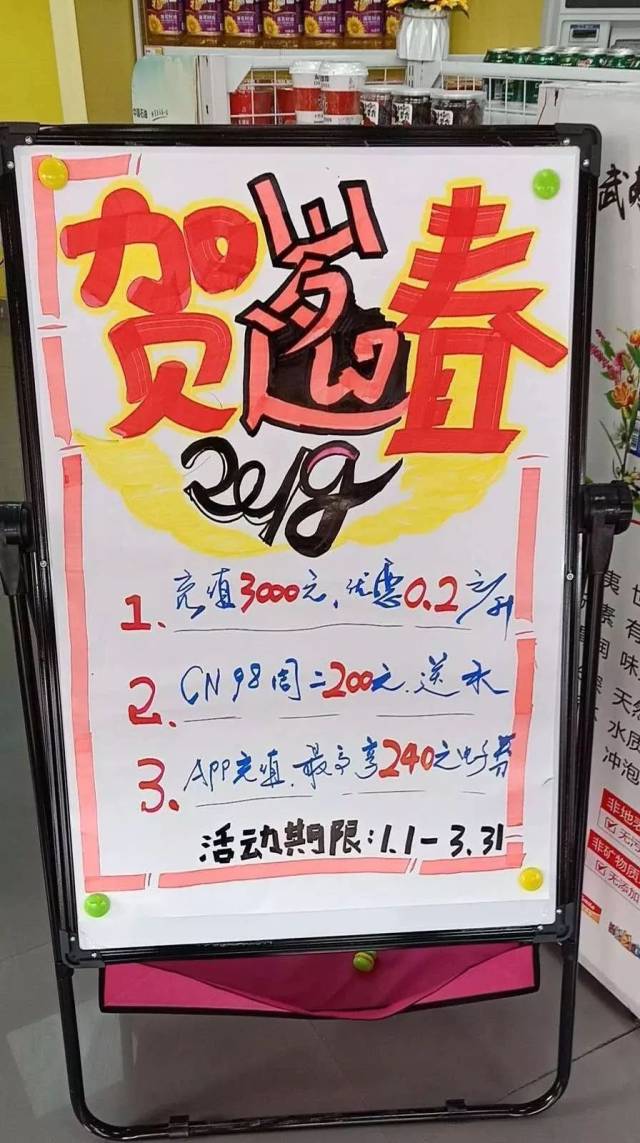 贺岁迎春
2019
1. 充值3000元,优惠0.2元/升
2. CN98周二200元送水
3. APP充值.最高享240元电子券
活动期限:1.1-3.31
天然
水质
冲泡
非矿物质
无添加